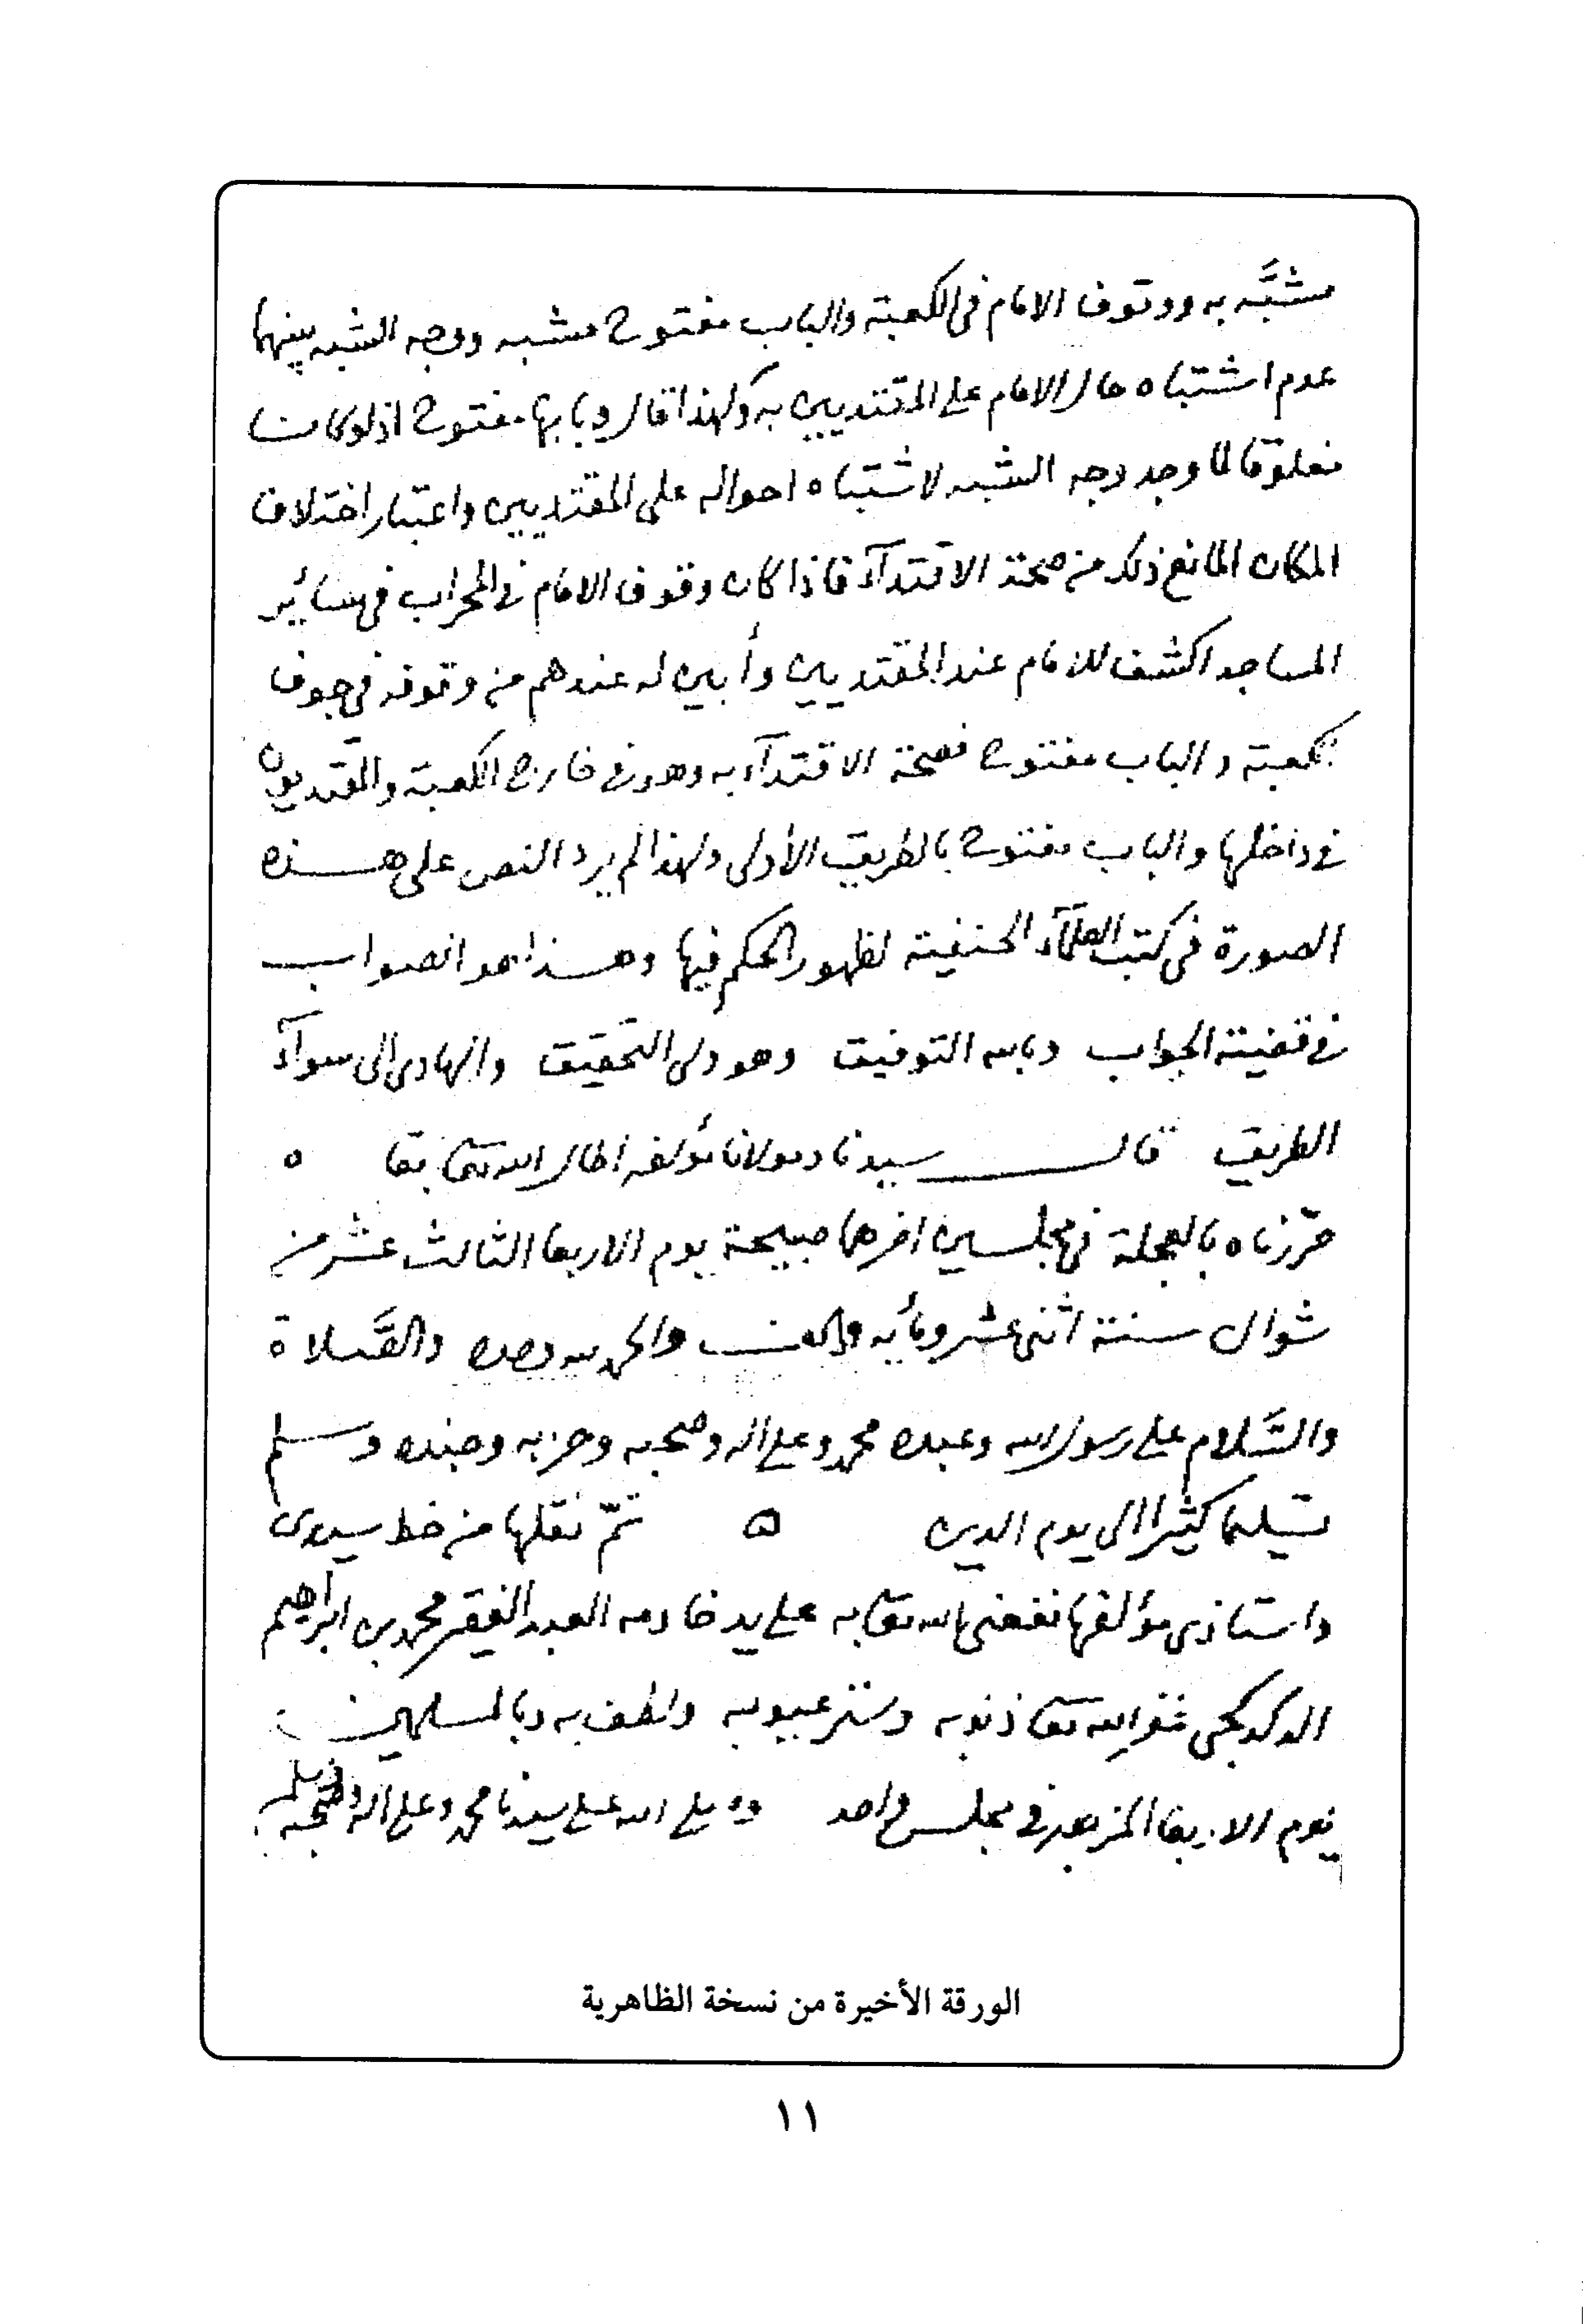 مشبَّه به ووقوف الامام في الكعبة والباب مفتوح مشبه ووجه الشبه بينهما
عدم اشتباه حال الامام على المقتديين به ولهذا قال وبابها مفتوح اذ لو كان
مغلوقا لما وجد وجه الشبه لاشتباه احواله على المقتديين واعتبار اختلاف
المكان المانع ذلك من صحة الاقتدآء فاذا كان وقوف الامام في المحراب في سائر
المساجد اكشف للامام عند المقتديين وأبين له عندهم من وقوفه في جوف
الكعبة والباب مفتوح فصحة الاقتدآء به وهو في خارج الكعبة والمقتديون
في داخلها والباب مفتوح بالطريق الأولى ولهذا لم يرد النص على هذه
الصورة في كتب العلمآء الحنفية لظهور الحكم فيها وهذا هو الصواب
في قضية الجواب وبالله التوفيق وهو ولي التحقيق والهادي الى سوآء
الطريق قال سيدنا ومولانا مؤلفه اطال الله تعالى بقا ه
حرّرناه بالعجلة في مجلسين اخرهما صبيحة يوم الاربعا الثالث عشر من
شوال سنة اثنى عشر ومأيه والف والحمد لله وحده والصَّلاة
والسَّلام على رسول الله وعبده محمد وعلى اله وصحبه وحزبه وجنده وسلم
تسليما كثيرا الى يوم الدين ه تمّ نقلها من خط سيدى
واستاذى مؤلفها نفعنى الله تعالى به على يد خادمه العبد الفقير محمد بن ابراهيم
الدكدكجى غفر الله تعالى ذنوبه وستر عيوبه ولطف به وبالمسلمين
يوم الاربعا المزبور في مجلس واحد وصلى الله على سيدنا محمد وعلى اله وصحبه وسلم
الورقة الأخيرة من نسخة الظاهرية
١١